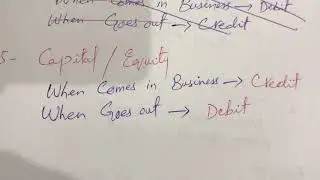 When Comes in Business → Debit
When Goes out → Credit
5- Capital / Equity
When Comes in Business → Credit
When Goes out → Debit